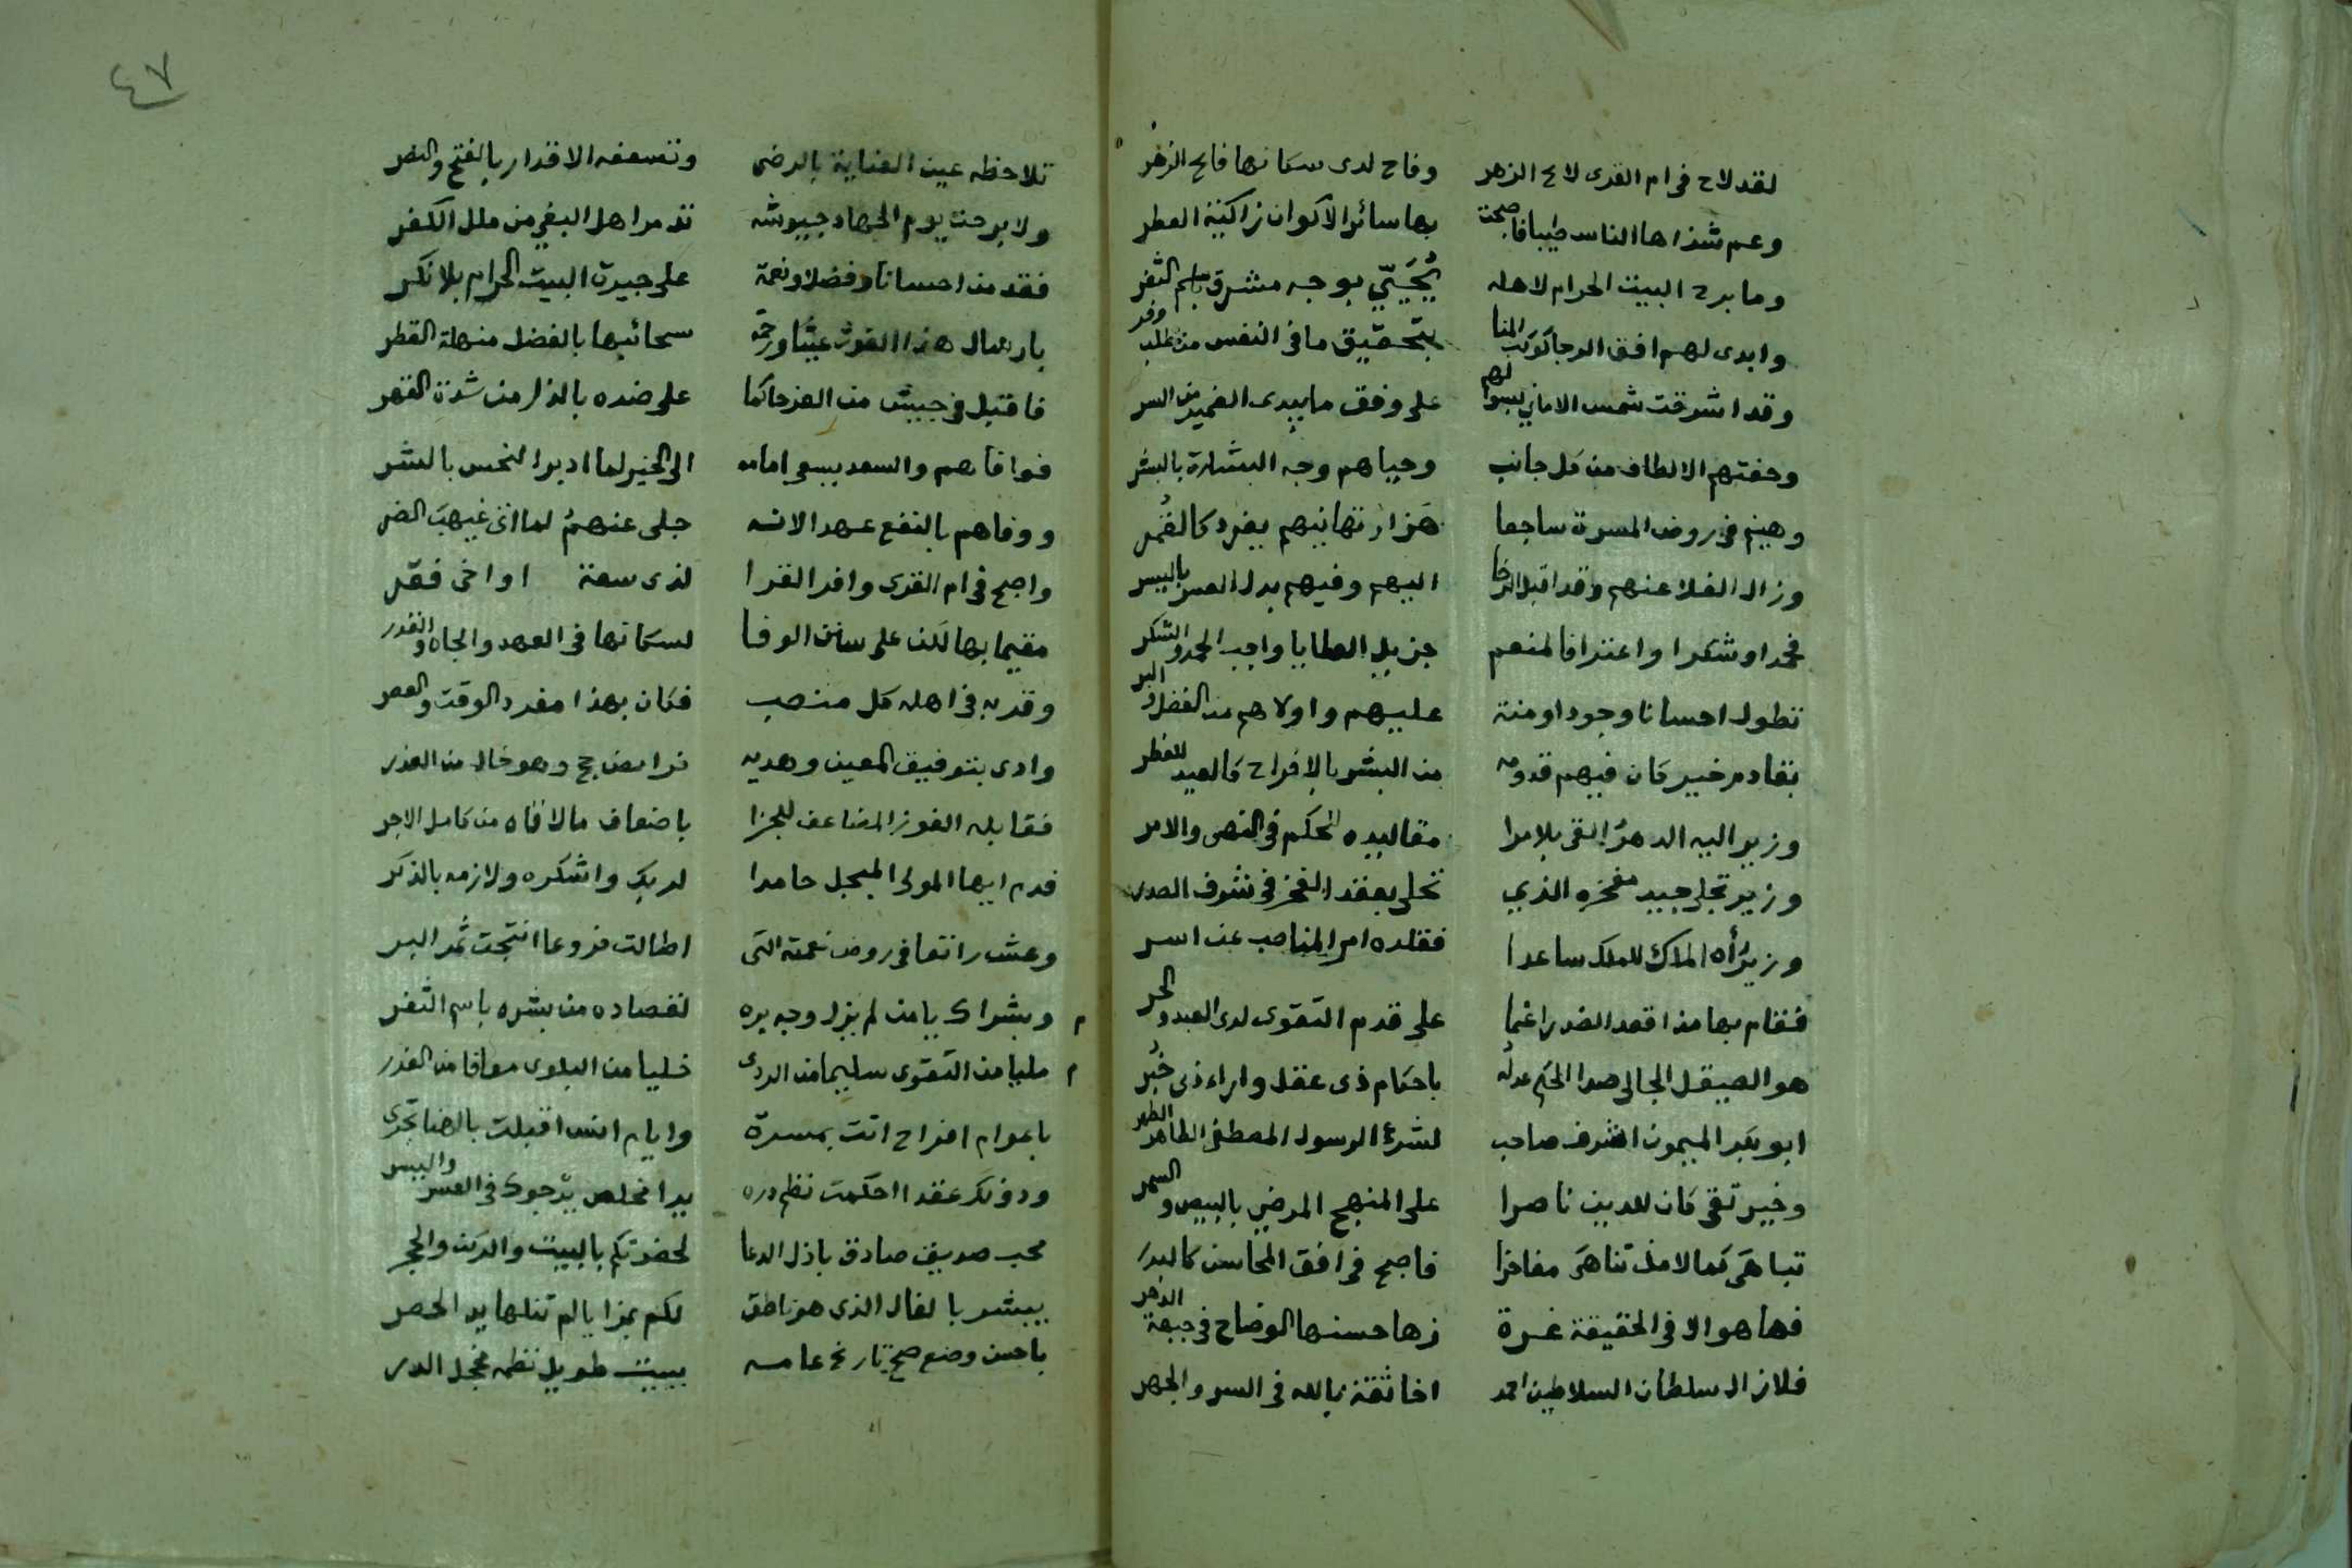 لقد لاح في ام القرى لائح الزهر وفاح لدى سكانها فائح الزهر
وعم شذاها الناس طيبا فاصبحت بها سائر الاكوان زاكية العطر
وما برح البيت الحرام لاهله يُحَيّي بوجه مشرق باسم الثغر
وابدى لهم افق الرجا كوكب المنا بتحقيق ما في النفس من مطلب وفر
وقد اشرقت شمس الاماني لهم على وفق ما يبدى الضمير من السر
وحفتهم الالطاف من كل جانب وحياهم وجه البشارة بالبشر
وهينم في روض المسرة ساجعا هَزار تهانيهم يغرد كالقُمر
وزال الغلا عنهم وقد اقبل الرخا اليهم وفيهم بدل العسر باليسر
فحمدا وشكرا واعترافا لمنعم جزيل العطايا واجب الحمد والشكر
تطول احسانا وجودا ومنة عليهم واولاهم من الفضل والبر
بقادم خير كان فيهم قدومه من البشر بالافراح كالعيد للفطر
وزير اليه الدهرُ القى بلا مرا مقاليده للحكم في النهى والامر
وزير تجلى جيد مفخره الذي تحلى بعقد الفخر في شرف الصدر
وزيرٌ أه الملاك للملك ساعدا فقلده امر المناصب عن اسر
فقام بها مذ اقعد الضد راغما على قدم التقوى لدى العبد والحر
هو الصيقل الجالى صدا الحكم عدله باحكام ذى عقل واراء ذى خُبر
ابو بكر الميمون اشرف صاحب لشرع الرسول المصطفى الطاهر الطهر
وخير تقى كان للدين ناصرا على المنهج المرضي بالبيض والسمر
تباهى كمالا مذ تناهى مفاخرا فاصبح في افق المحاسن كالبدر
فها هو الا في الحقيقة غرة زها حسنها الوضاح في جبهة الدهر
فلا زال سلطان السلاطين احمد اخا ثقة بالله في السر والجهر
٤٧
تلاحظه عين العناية بالرضى وتسعفه الاقدار بالفتح والنصر
ولا برحت يوم الجهاد جيوشه تدمر اهل البغي من ملل الكفر
فقد من احسانا وفضلا ونعمة على جيرة البيت الحرام بلا نكر
بارسال هذا الغوث غيثا ورحمة سحائبها بالفضل منهلة القطر
فاقبل في جيش من العز حاكما على ضده بالذل من شدة القهر
فوافاهم والسعد يسعى امامه الى الخير لما ادبر النحس بالشر
ووفاهم بالنفع عهد الانه جلى عنهمُ لما اتى غيهبَ الضر
واصبح في ام القرى وافر القرا لذى سعة او اخى فقر
مقيما بها لكن على سنن الوفا لسكانها في العهد والجاه والقدر
وقر به في اهله كل منصب فكان بهذا مفرد الوقت والعصر
وادى بتوفيق المعين وهديه فرائض حج وهو خال من العذر
فقابله الفوز المضاعف للجزا باضعاف ما لاقاه من كامل الاجر
فدم ايها المولى المبجل حامدا لربك واشكره ولازمه بالذكر
وعش راتعا في روض نعمته التى اطالت فروعا انتجت ثمر البر
م وبشراك يا من لم يزل وجه بره لقصاده من بشره باسم الثغر
م مليا من التقوى سليما من الردى خليا من البلوى معافا من الغدر
باعوام افراح اتت بمسرة وايام انس اقبلت بالهنا تجرى
ودونك عقدا احكمت نظم دره يدا مخلص يرجوك في العسر واليسر
محب صديق صادق باذل الدعا لحضرتكم بالبيت والركن والحجر
يبشر بالفال الذى هو ناطق لكم بمزايا لم تنلها يد الحصر
باحسن وضع صح تاريخ عامه ببيت طويل نظمه مخجل الدر